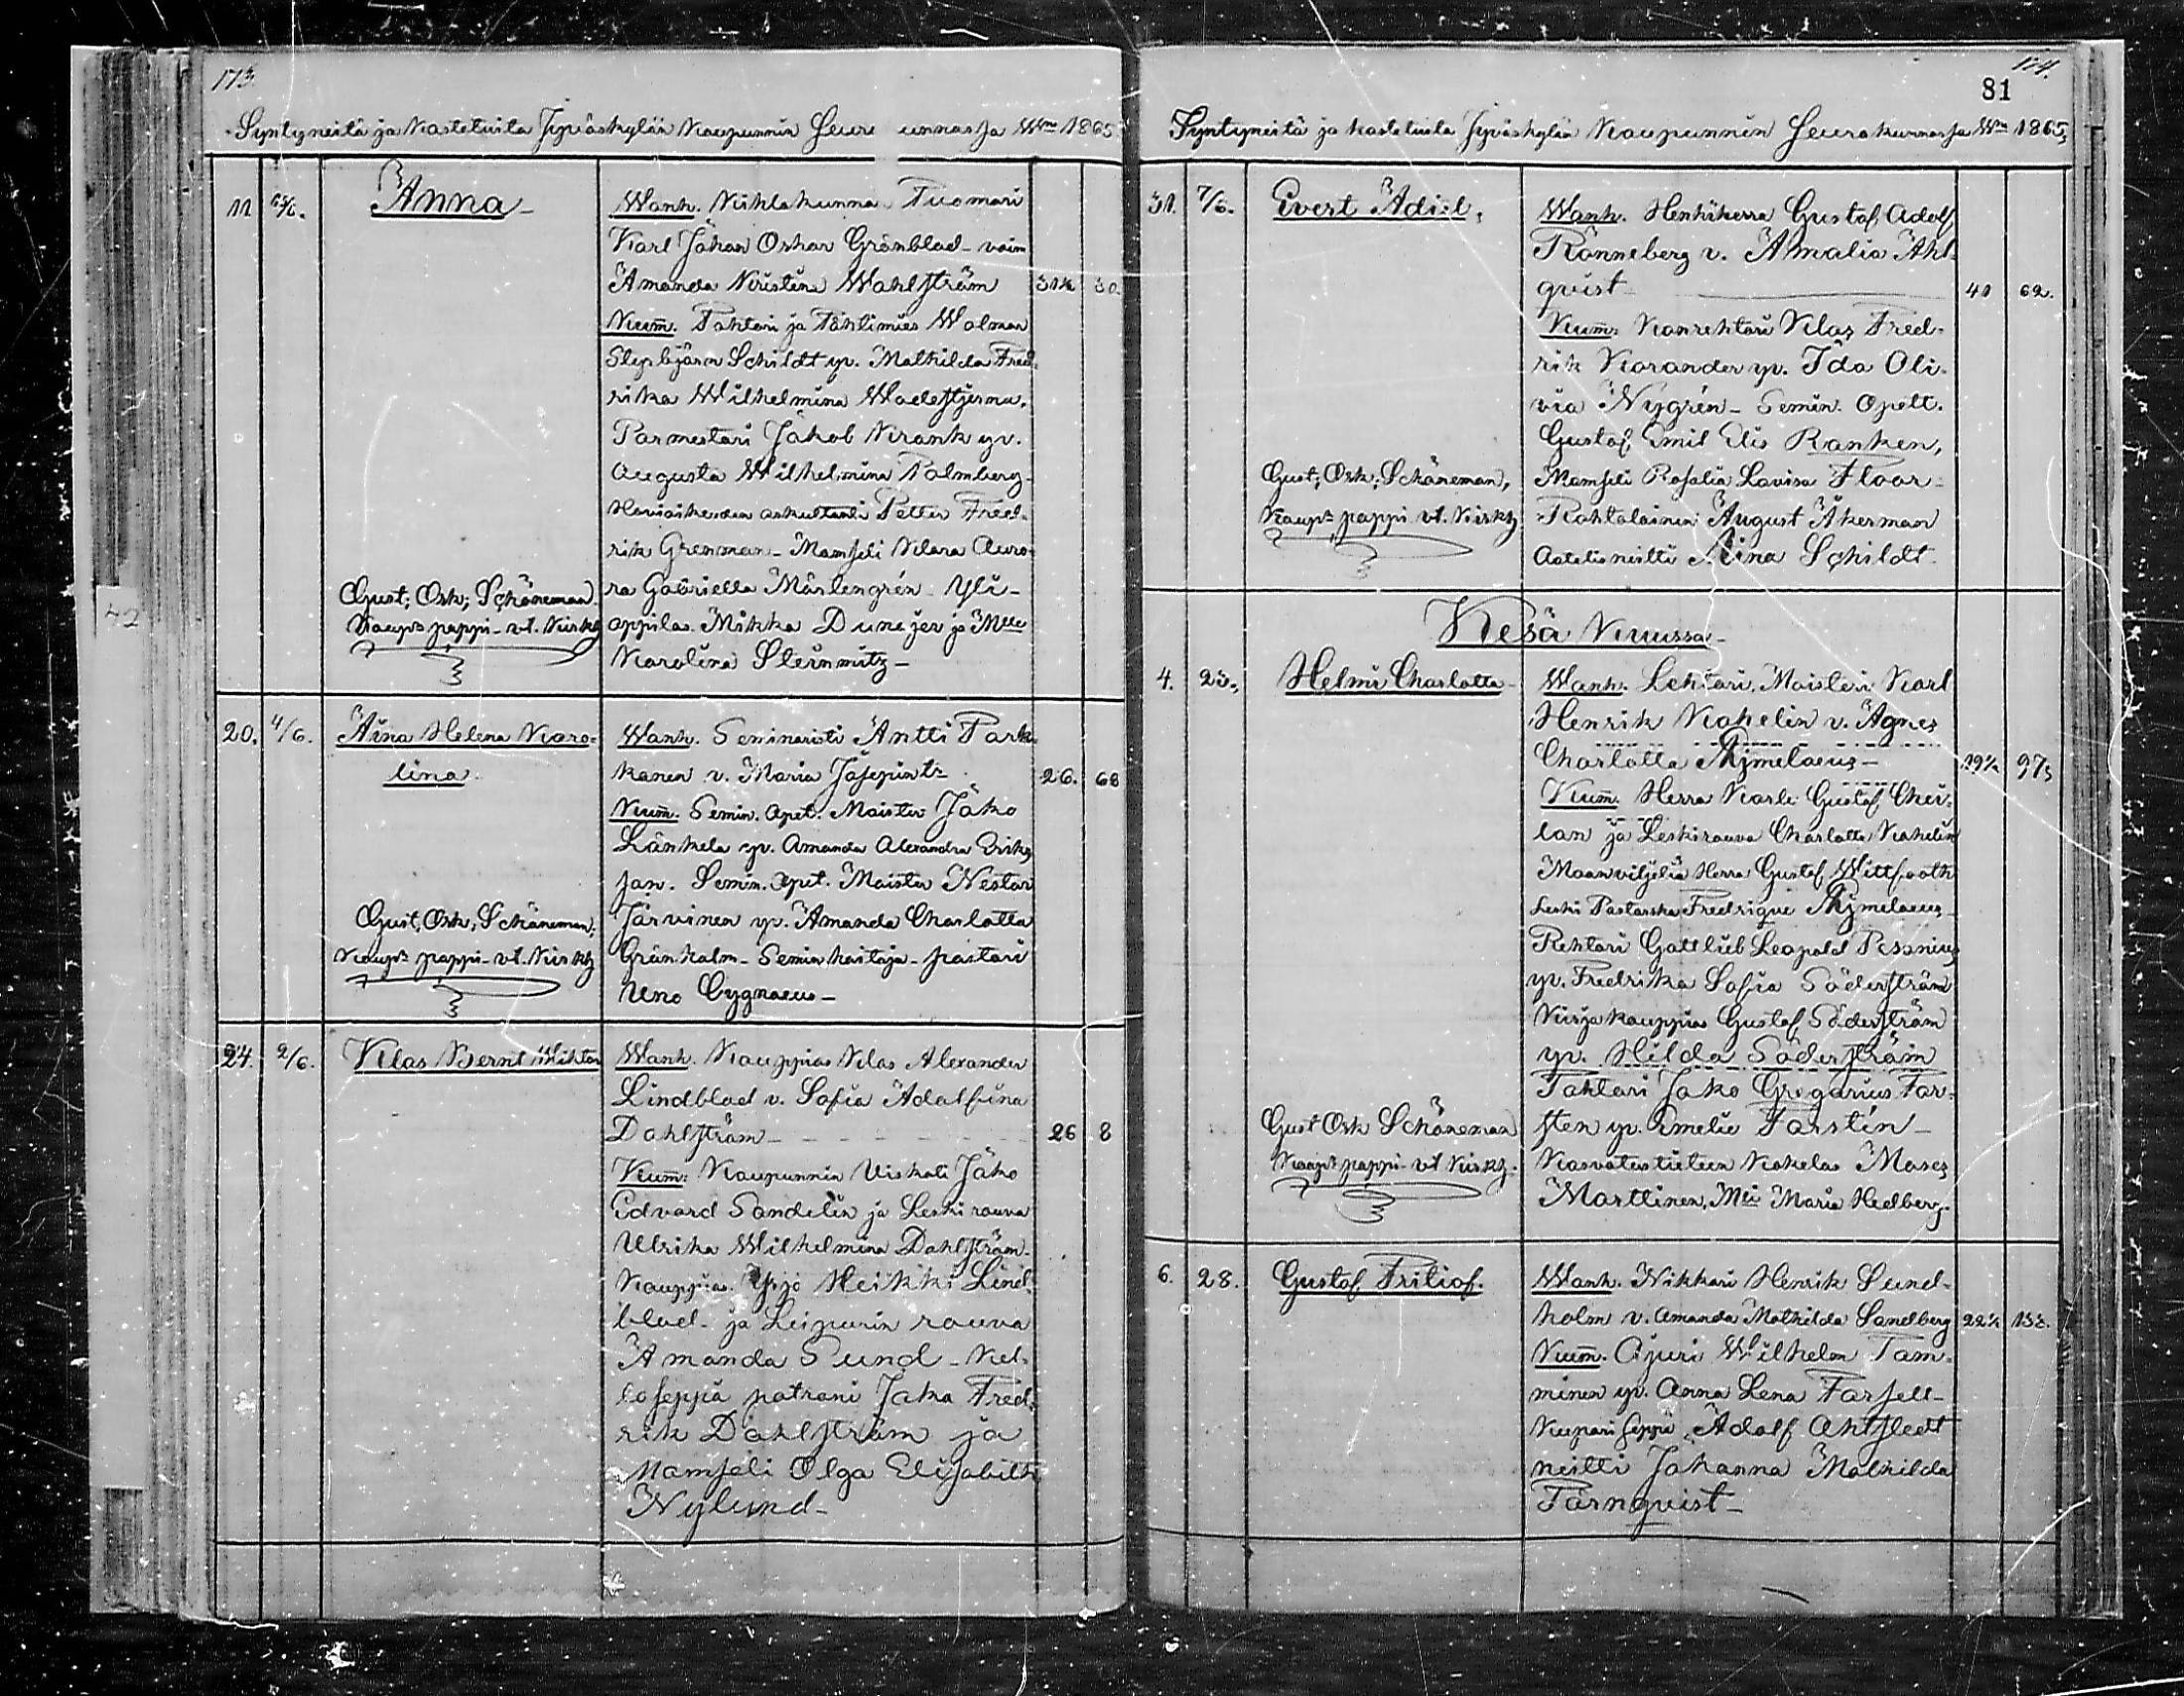 173.
Syntyneitä ja Kastetuita Jyväskylän Kaupunnin Seurakunnassa Wna 1865
11
Anna
Wanh. Kihlakunna Tuomari
Karl Johan Oskar Grönblad - vaim
Amanda Kristina Wahlström
31½
30.
Kumm. Tohtori ja Tähtimies Wolmar
Stepbjörn Schildt yv. Mathilda Fred-
rika Wilhelmina Wadestjerna.
Parmestari Jakob Krank yv.
Augusta Wilhelmina Palmberg
Hovioikeuden auskultanti Petter Fred-
rik Grenman - Mamseli Klara Auro-
ra Gabriella Mårtengrén - Yli-
oppilas Mikka Duncker ja Mlle
Karolina Steinmitz -
Gust; Osk; Schöneman
Kaupn pappi - vt. Kirkh
20.
4/6.
Aina Helena Karo-
lina.
Wanh. Seminaristi Antti Park-
kanen v. Maria Josepintr
26.
68
Kumm. Semin. Opet. Maister Jako
Länkela yv. Amanda Alexandra Eriks
son. Semin. Opet. Maister Nestor
Järvinen yv. Amanda Charlotta
Grönholm - Semin hoitaja - pastori
Uno Cygnaeus -
Gust; Osk; Schöneman;
Kaupn pappi - vt. Kirkh
24.
2/6.
Klas Bernt Wiktor
Wanh. Kauppias Klas Alexander
Lindblad v. Sofia Adolfina
Dahlström -
26
8
Kumm. Kaupunnin Viskali Jako
Edvard Sandelin ja Leski rouva
Ulrika Wilhelmina Dahlström -
Kauppias Yrjö Heikki Lind-
blad - ja Leipurin rouva
Amanda Sund - Kel-
loseppä patroni Jaka Fred-
rik Dahlström ja
Mamseli Olga Elisabeth
Nylund -
174.
81
Syntyneitä ja kastetuita Jyväskylän Kaupunnin Seurakunnassa Wna 1865
31.
7/6.
Evert Adiel,
Wanh. Henkikerra Gustaf Adolf
Rönneberg v. Amalia Ahl-
quist
41
62.
Kumm. Konrehtori Klas Fred-
rik Korander yv. Ida Oli-
via Nygrén - Semin. Opett.
Gustaf Emil Elis Ranken,
Mamseli Rosalia Lovisa Floor -
Rohtolainen August Åkerman
Aatelis neitti Aina Schildt
Gust; Osk; Schöneman,
Kaupn pappi vt. Kirkh
Kesä Kuussa -
4.
23.
Helmi Charlotta -
Wanh. Lehtori, Maisteri Karl
Henrik Kahelin v. Agnes
Charlotta Mymelaeus -
29½
97
Kumm. Herra Karle Gustaf Chei-
lan ja Leskirouva Charlotta Kahelin
Maanviljeliä Herra Gustaf Wittfooth
Leski Pastorska Fredrique Mymelaeus
Rehtori Gottlieb Leopold Pesonius
yv. Fredrika Sofia Söderström
Kirjakauppias Gustaf Söderström
yv. Hilda Söderström
Tohtori Jako Gregorius Fors-
sten yv. Emelie Forstén -
Kasvatustieteen Kokelas Moses
Marttinen, Mlle Maria Hedberg.
Gust Osk Schöneman
Kaupn pappi - vt Kirkh.
6.
28.
Gustaf Fritiof.
Wanh. Nikkari Henrik Sund-
holm v. Amanda Mathilda Sandberg
22½
138.
Kumm. Ajuri Wilhelm Tam-
minen yv. Anna Lena Forsell -
Kupariseppä Adolf Ahlstedt
neitti Johanna Mathilda
Törnquist -